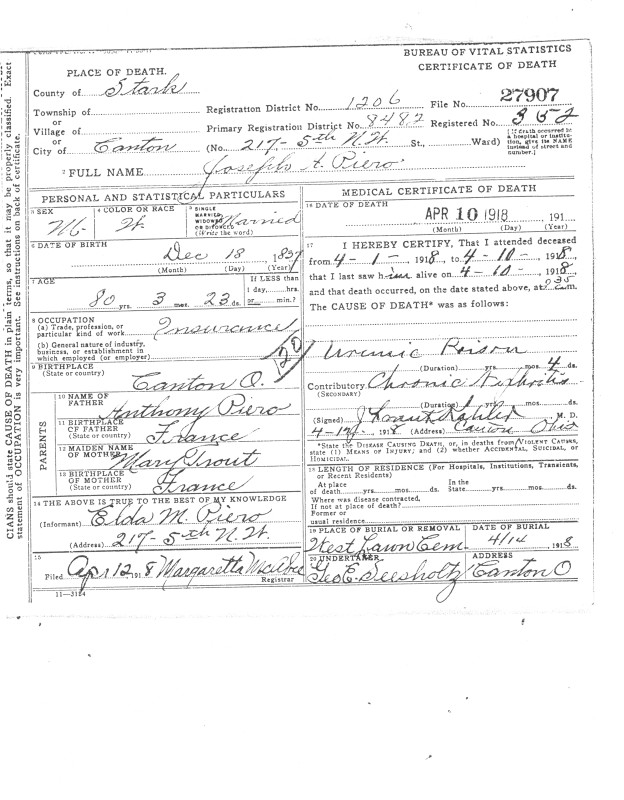 BUREAU OF VITAL STATISTICS
CERTIFICATE OF DEATH
PLACE OF DEATH.
County of Stark
Township of
or
Village of
or
City of Canton
Registration District No. 1206 File No. 27907
Primary Registration District No. 8482 Registered No. 352
(No. 217- 5th N.W. St., Ward) (If death occurred in a hospital or institution, give its NAME instead of street and number.)
2 FULL NAME Joseph A. Piero
CIANS should state CAUSE OF DEATH in plain terms, so that it may be properly classified. Exact
statement of OCCUPATION is very important. See instructions on back of certificate.
PERSONAL AND STATISTICAL PARTICULARS
3 SEX M. 4 COLOR OR RACE W. 5 SINGLE MARRIED, WIDOWED OR DIVORCED (Write the word) Married
6 DATE OF BIRTH
Dec 18, 1837
(Month) (Day) (Year)
7 AGE If LESS than
1 day,......hrs.
80 yrs. 3 mos. 23 ds. or......min.?
8 OCCUPATION
(a) Trade, profession, or
particular kind of work Insurance
(b) General nature of industry,
business, or establishment in
which employed (or employer)
9 BIRTHPLACE
(State or country) Canton O.
PARENTS
10 NAME OF
FATHER Anthony Piero
11 BIRTHPLACE
OF FATHER
(State or country) France
12 MAIDEN NAME
OF MOTHER Mary Trout
13 BIRTHPLACE
OF MOTHER
(State or country) France
14 THE ABOVE IS TRUE TO THE BEST OF MY KNOWLEDGE
(Informant) Elda M. Piero
(Address) 217- 5th N.W.
15
Filed Apr 12, 1918 Margaretta
Registrar
11-3184
MEDICAL CERTIFICATE OF DEATH
16 DATE OF DEATH
APR 10 1918, 191
(Month) (Day) (Year)
17 I HEREBY CERTIFY, That I attended deceased
from 4-1-, 1918, to 4-10-, 1918,
that I last saw him alive on 4-10-, 1918,
and that death occurred, on the date stated above, at 9 35 m.
The CAUSE OF DEATH* was as follows:
Uremic Poison
(Duration) yrs. mos. 4 ds.
Contributory Chronic Nephritis
(SECONDARY)
(Duration) 1 yrs. mos. ds.
(Signed) M. D.
4-12-, 1918 (Address) Canton Ohio
*State the DISEASE CAUSING DEATH, or, in deaths from VIOLENT CAUSES,
state (1) MEANS OF INJURY; and (2) whether ACCIDENTAL, SUICIDAL, or
HOMICIDAL.
18 LENGTH OF RESIDENCE (For Hospitals, Institutions, Transients,
or Recent Residents)
At place In the
of death......yrs......mos......ds. State......yrs......mos......ds.
Where was disease contracted,
If not at place of death?
Former or
usual residence
19 PLACE OF BURIAL OR REMOVAL DATE OF BURIAL
West Lawn Cem. 4/14, 1918
20 UNDERTAKER ADDRESS
Geo E. Seesholtz Canton O